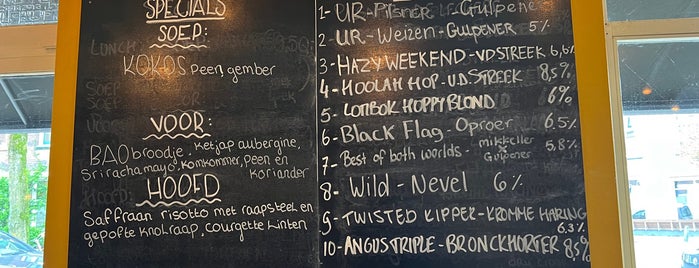 SPECIALS
SOEP:
KOKOS Peen, gember
VOOR:
BAO broodje, Ketjap aubergine,
Sriracha mayo, Komkommer, Peen en
Koriander
HOOFD
Saffraan risotto met raapsteel en
gepofte Knolraap, courgette linten
1- UR-Pilsner - Gulpener
2- UR-Weizen - Gulpener 5%
3- HAZY WEEKEND - VD STREEK 6,6%
4- HOOLAH HOP - V.D STREEK 8,5%
5- LOMBOK HOPPY BLOND 6%
6- BLACK FLAG - Oproer 6.5%
7- Best of both worlds - mikkeller Gulpener 5.8%
8- Wild - Nevel 6%
9- TWISTED KIPPER - KROMME HARING
6.3%
10- ANGUS TRIPLE - BRONCKHORTER 8,5%